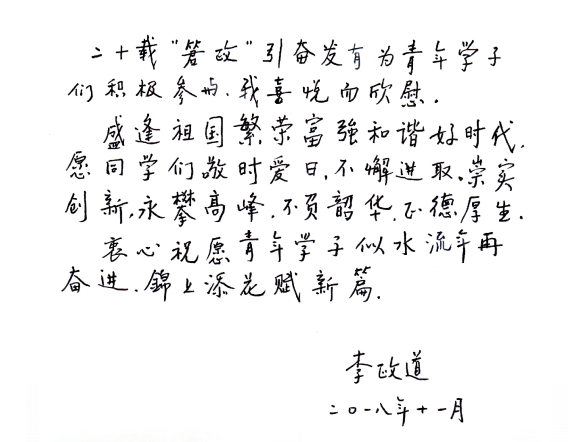 二十载“箬政”引奋发有为青年学子
们积极参与.我喜悦而欣慰.
盛逢祖国繁荣富強和谐好时代,
愿同学们敬时爱日,不懈进取.崇实
创新,永攀高峰.不负韶华,正德厚生.
衷心祝愿青年学子似水流年再
奋进.錦上添花赋新篇.
李政道
二〇一八年十一月